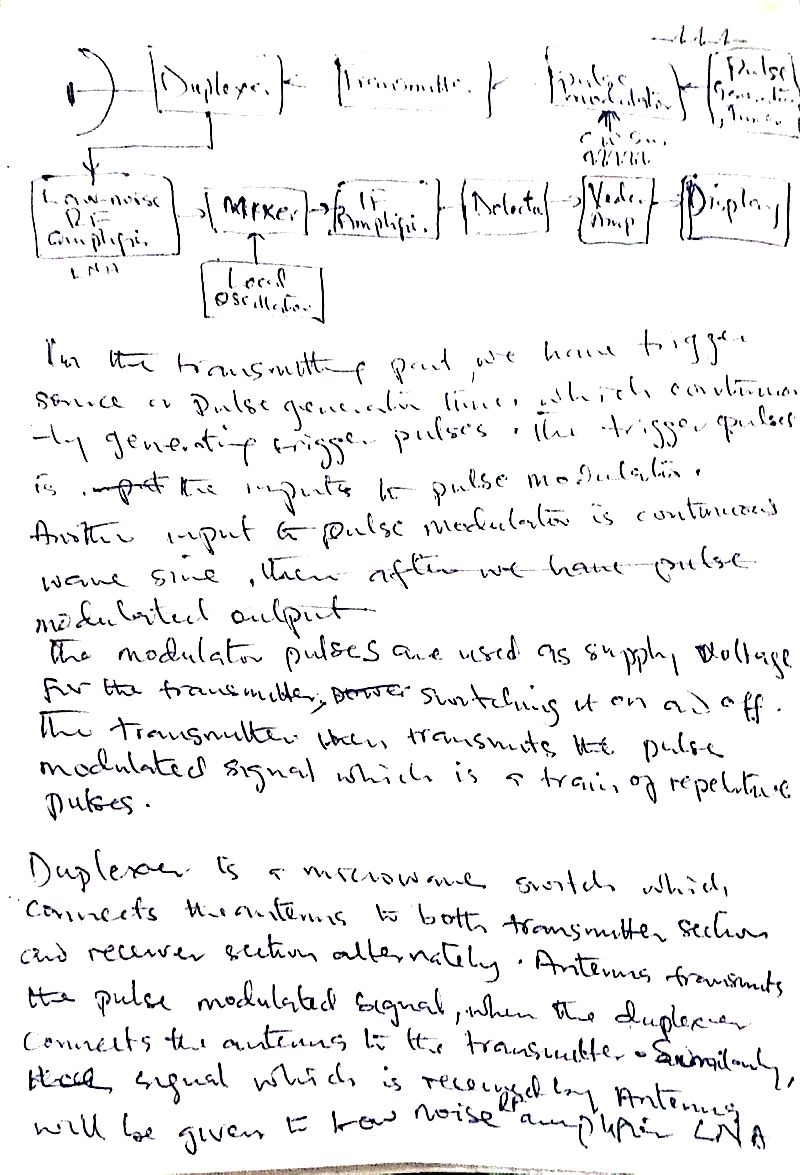 Duplexer
Transmitte.
pulse modulator
Pulse Generator, timer
C W Sin.
Low-noise RF amplifi.
LNA
Mixer
IF Amplifi.
Detector
Video Amp
Display
Local oscillator
In the transmitting part, we have trigger
source or pulse generator timer which continuou
-ly generating trigger pulses. The trigger pulses
is the inputs to pulse modulator.
Another input to pulse modulator is continuous
wave sine, then after we have pulse
modulated output
The modulator pulses are used as supply voltage
for the transmitter, switching it on and off.
The transmitter then transmits the pulse
modulated signal which is a train of repetitive
pulses.
Duplexer is a microwave switch which
connects the antenna to both transmitter section
and receiver section alternately. Antenna transmits
the pulse modulated signal, when the duplexer
connects the antenna to the transmitter. Similarly,
signal which is received by Antenna
will be given to Low noise RF amplifier LNA